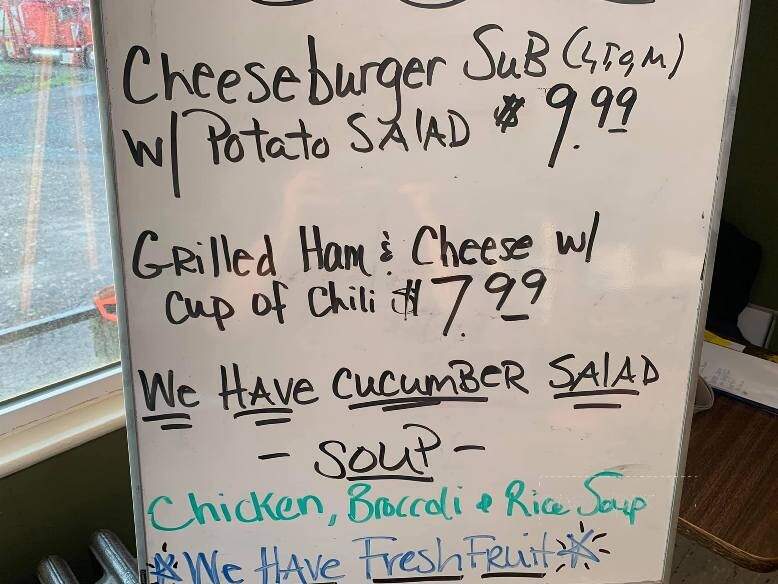 Cheeseburger SuB (LTQM)
w/ Potato SALAD $9.99
GRilled Ham & Cheese w/
cup of Chili $7.99
We HAVE CUCUMBER SALAD
- SOUP -
Chicken, Broccoli & Rice Soup
We HAVE Fresh FRuit